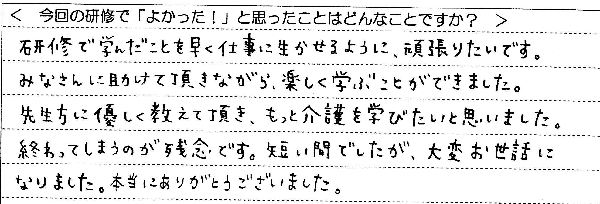 ＜ 今回の研修で「よかった！」と思ったことはどんなことですか？ ＞
研修で学んだことを早く仕事に生かせるように、頑張りたいです。
みなさんに助けて頂きながら、楽しく学ぶことができました。
先生方に優しく教えて頂き、もっと介護を学びたいと思いました。
終わってしまうのが残念です。短い間でしたが、大変お世話に
なりました。本当にありがとうございました。